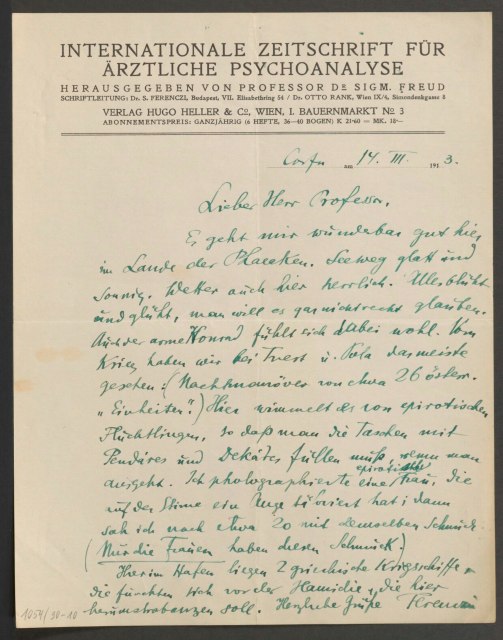 INTERNATIONALE ZEITSCHRIFT FÜR
ÄRZTLICHE PSYCHOANALYSE
HERAUSGEGEBEN VON PROFESSOR DR SIGM. FREUD
SCHRIFTLEITUNG: Dr. S. FERENCZI, Budapest, VII. Elisabethring 54 / Dr. OTTO RANK, Wien IX/4, Simondenkgasse 8
VERLAG HUGO HELLER & Co, WIEN, I. BAUERNMARKT No 3
ABONNEMENTSPREIS: GANZJÄHRIG (6 HEFTE, 36—40 BOGEN) K 21·60 = MK. 18·—
Corfu am 14. III. 1913.
Lieber Herr Professor.
Es geht mir wunderbar gut hier
im Lande der Phaeaken. Seeweg glatt und
sonnig. Wetter auch hier herrlich. Alles blüht
und glüht, man will es garnicht recht glauben.
Auch der arme Konrad fühlt sich dabei wohl. Vom
Krieg haben wir bei Triest u. Pola das meiste
gesehen: (Nachtmanöver von etwa 26 österr.
„Einheiten".) Hier wimmelt es von epirotischen
Flüchtlingen, so daß man die Taschen mit
und füllen muß, wenn man
ausgeht. Ich photographierte eine epirotische Frau, die
auf der Stirne ein Auge tätowiert hat; dann
sah ich noch etwa 20 mit demselben Schmuck
(Nur die Frauen haben diesen Schmuck.)
Hier im Hafen liegen 2 griechische Kriegsschiffe,
die fürchten sich vor der Hamidie, die hier
herumstrabanzen soll. Herzliche Grüße Ferenczi
1054/30-10